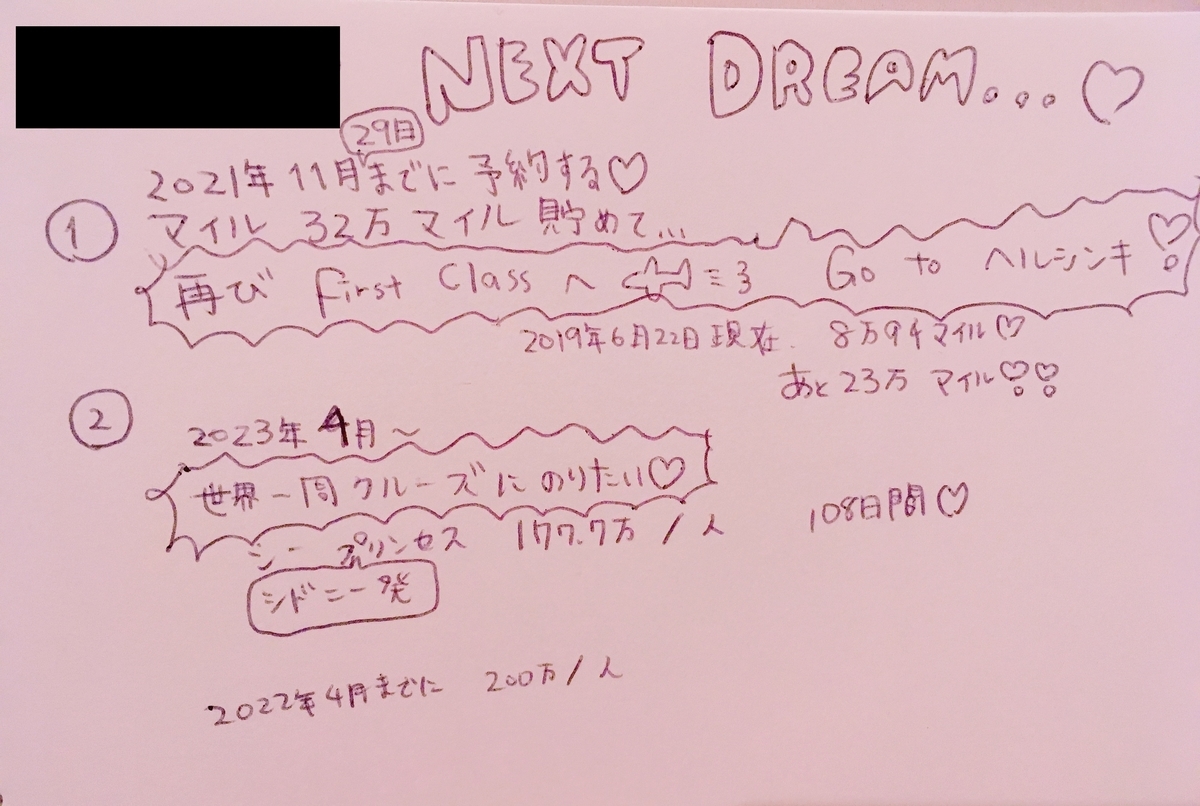 NEXT DREAM...♡
29日
2021年11月までに予約する♡
① マイル 32万マイル貯めて...
再び First Class へ Go to ヘルシンキ
2019年6月22日現在. 8万94マイル♡
あと23万マイル
② 2023年4月～
世界一周クルーズにのりたい♡
シー プリンセス 177.7万/人 108日間♡
シドニー発
2022年4月までに 200万/人